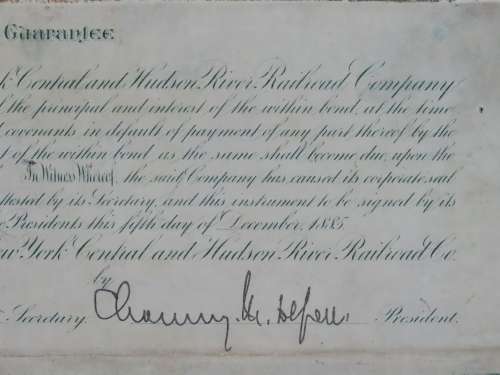 Guarantee
k Central and Hudson River Railroad Company
the principal and interest of the within bond, at the time
covenants in default of payment of any part thereof by the
t of the within bond as the same shall become due, upon the
In Witness Whereof, the said Company has caused its corporate seal
ttested by its Secretary, and this instrument to be signed by its
Presidents this fifth day of December, 1885.
ew York Central and Hudson River Railroad Co.
by
Secretary. Chauncey M. Depew President.